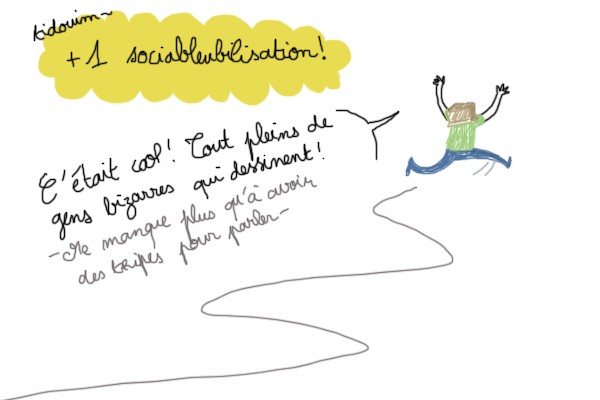 kidouim~
+1 sociableubilisation!
C'était cool! Tout pleins de
gens bizarres qui dessinent!
-Me manque plus qu'à avoir
des tripes pour parler-